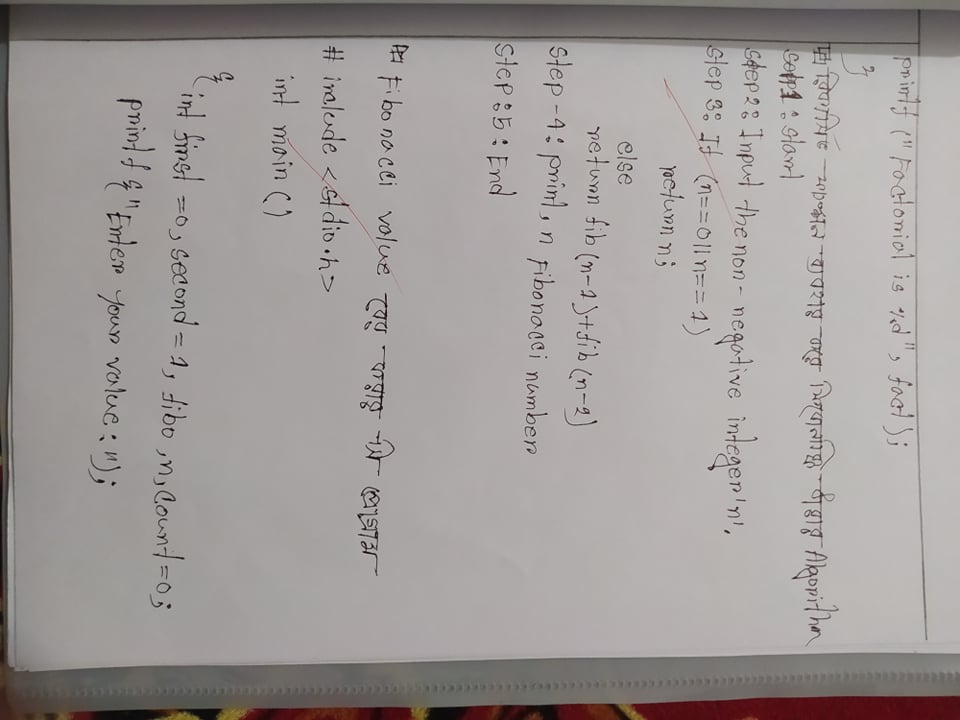 printf ("Factorial is %d", fact);
}
রিকার্সিভ ফাংশন ব্যবহার করে ফিবোনাক্কি ধারার Algorithm
Step1: Start
Step2: Input the non-negative integer 'n'.
Step 3: If (n==0||n==1)
return n;
else
return fib(n-1)+fib(n-2)
Step-4: print, n Fibonacci number
Step:5: End
Fibonacci value বের করার সি প্রোগ্রাম
# include <stdio.h>
int main()
{
int first =0, second =1, fibo, n, count=0;
printf {"Enter your value:");